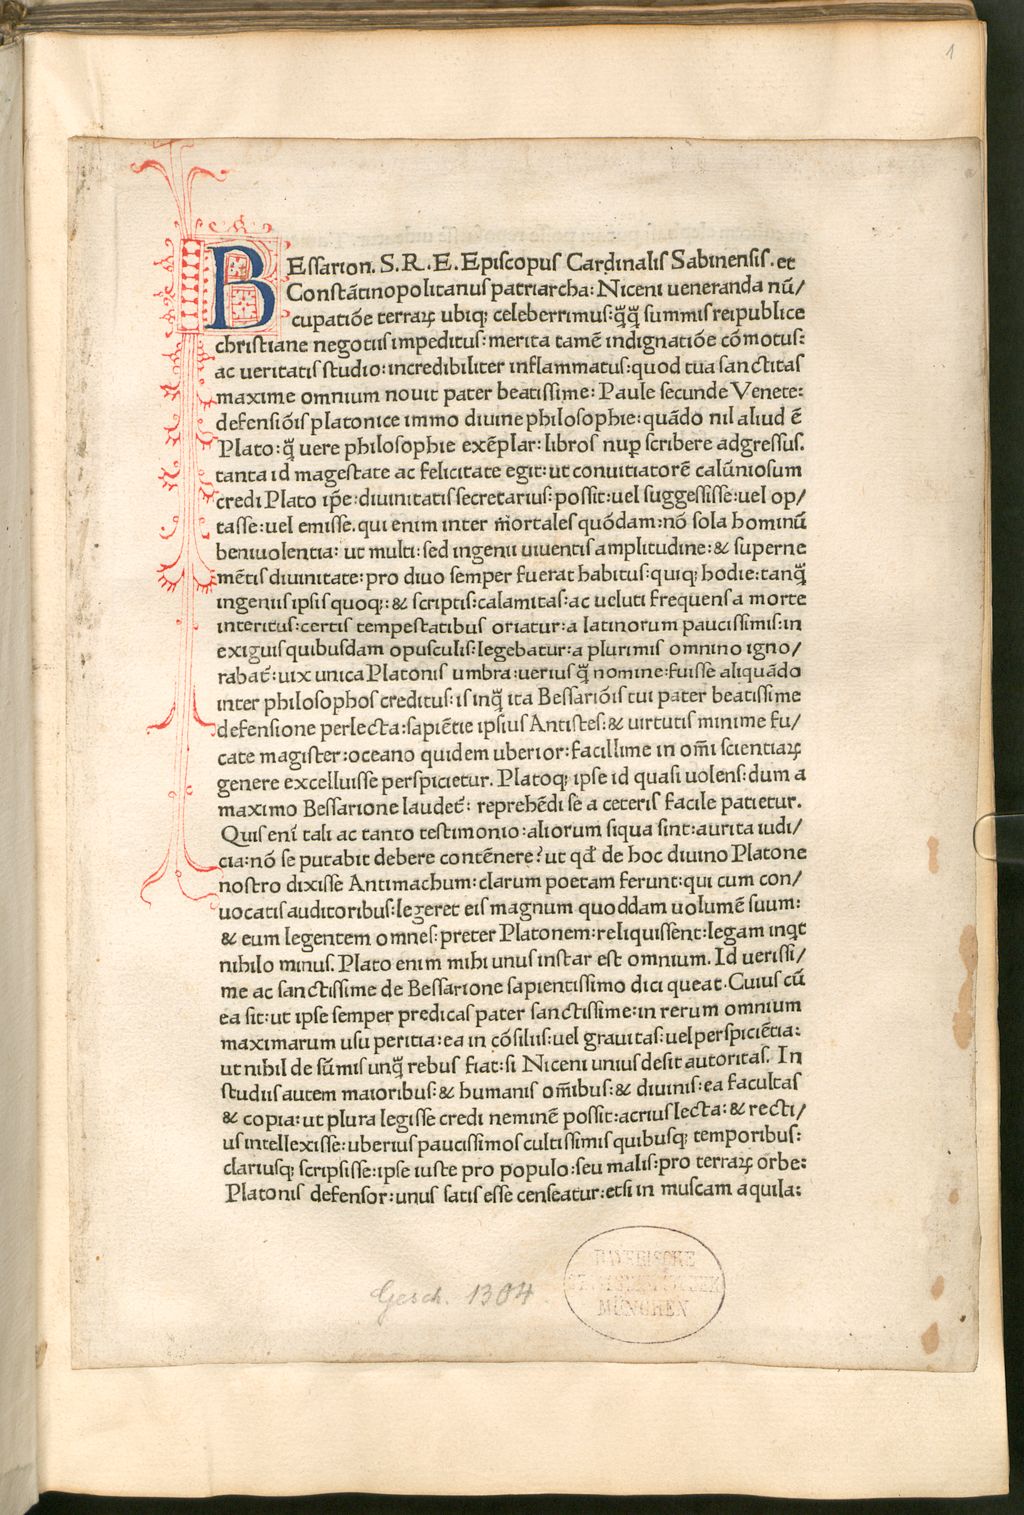 1
BEssarion. S. R. E. Episcopus Cardinalis Sabinensis. et
Constãtinopolitanus patriarcha: Niceni ueneranda nũ/
cupatiõe terraꝝ ubiq; celeberrimus: q̃q̃ summis reipublice
christiane negotiis impeditus: merita tamẽ indignatiõe cõmotus:
ac ueritatis studio: incredibiliter inflammatus: quod tua sanctitas
maxime omnium nouit pater beatissime: Paule secunde Venete:
defensiõis platonice immo diuine philosophie: quãdo nil aliud ẽ
Plato: q̃ uere philosophie exẽplar: libros nuꝑ scribere adgressus.
tanta id magestate ac felicitate egit: ut conuitiatorẽ calũniosum
credi Plato ip̃e: diuinitatis secretarius: possit: uel suggessisse: uel op/
tasse: uel emisse. qui enim inter mortales quõdam: nõ sola hominũ
beniuolentia: ut multi: sed ingenii uiuentis amplitudine: & superne
mẽtis diuinitate: pro diuo semper fuerat habitus: quiq; hodie: tanq̃
ingeniis ipsis quoq;: & scriptis: calamitas: ac ueluti frequens a morte
interitus: certis tempestatibus oriatur: a latinorum paucissimis: in
exiguis quibusdam opusculis: legebatur: a plurimis omnino igno/
rabat̃: uix unica Platonis umbra: uerius q̃ nomine: fuisse aliquãdo
inter philosophos creditus: is inq̃ ita Bessariõis tui pater beatissime
defensione perlecta: sapiẽtie ipsius Antistes: & uirtutis minime fu/
cate magister: oceano quidem uberior: facillime in om̃i scientiaꝝ
genere excelluisse perspicietur. Platoq; ipse id quasi uolens: dum a
maximo Bessarione laudet̃: reprehẽdi se a ceteris facile patietur.
Quis eni᷉ tali ac tanto testimonio: aliorum siqua sint: aurita iudi/
cia: nõ se putabit debere contẽnere? ut qđ de hoc diuino Platone
nostro dixisse Antimachum: clarum poetam ferunt: qui cum con/
uocatis auditoribus: legeret eis magnum quoddam uolumẽ suum:
& eum legentem omnes: preter Platonem: reliquissent: legam inqt
nihilo minus. Plato enim mihi unus instar est omnium. Id uerissi/
me ac sanctissime de Bessarione sapientissimo dici queat. Cuius cũ
ea sit: ut ipse semper predicas pater sanctissime: in rerum omnium
maximarum usu peritia: ea in cõsiliis: uel grauitas: uel perspiciẽtia:
ut nihil de sũmis unq̃ rebus fiat: si Niceni unius desit autoritas. In
studiis autem maioribus: & humanis om̃ibus: & diuinis: ea facultas
& copia: ut plura legisse credi neminẽ possit: acrius lecta: & recti/
us intellexisse: uberius paucissimos cultissimis quibusq; temporibus:
clariusq; scripsisse: ipse iuste pro populo: seu malis: pro terraꝝ orbe:
Platonis defensor: unus satis esse censeatur: etsi in muscam aquila:
Gesch. 1304
BAYERISCHE
STAATSBIBLIOTHEK
MÜNCHEN